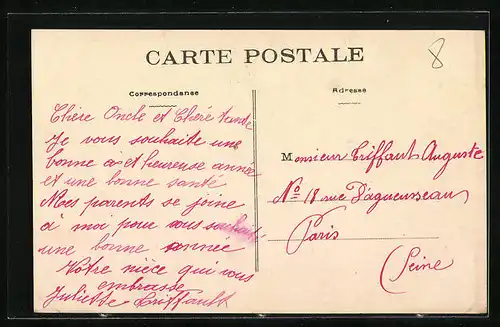 CARTE POSTALE
8
Correspondance
Adresse
Chère Oncle et Chère tante
Je vous souhaite une
bonne et heureuse année
et une bonne santé
Mes parents se joine
à moi pour vous souhaité
une bonne année
Votre nièce qui vous
embrasse
Juliette Triffault
Monsieur Triffault Auguste
No 18 rue D'aguesseau
Paris
(Seine)